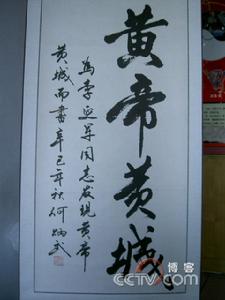 黄帝黄城
为李延军同志发现黄帝
黄城而書辛巳年秋何炳武
博客
CCTV.com